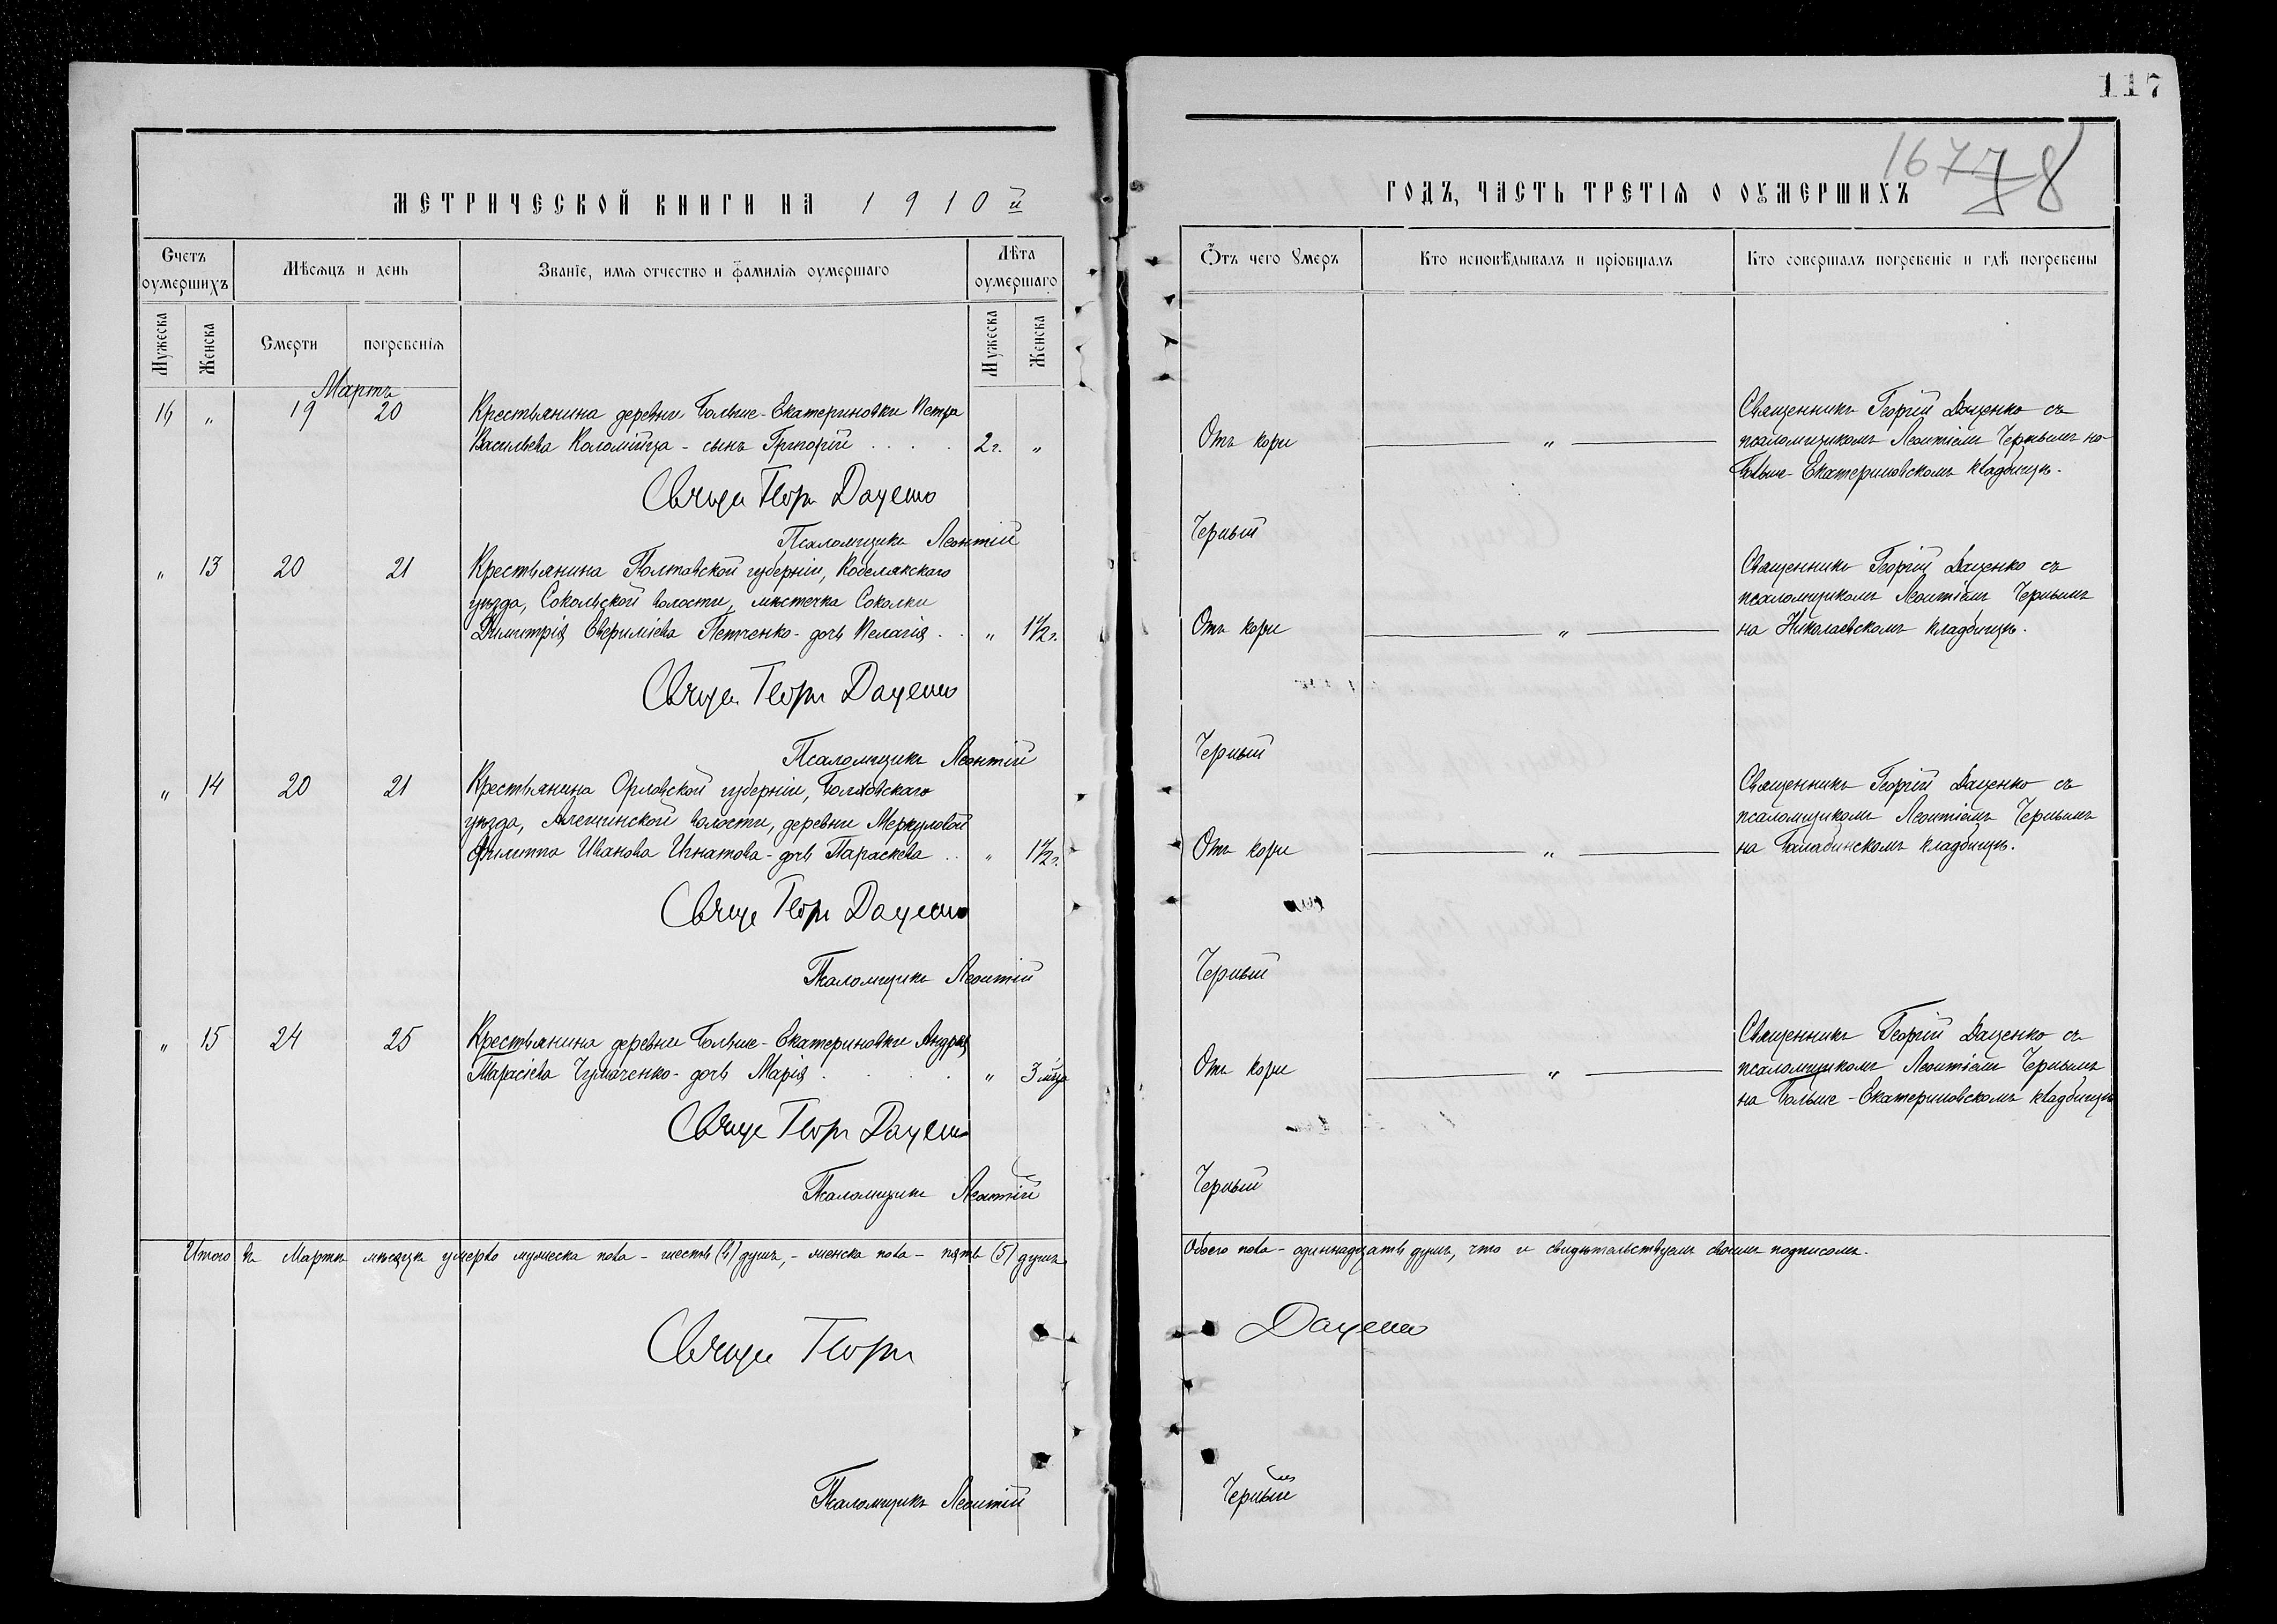 117
167 78
МЕТРИЧЕСКОЙ КНИГИ НА 1910й
ГОДЪ, ЧАСТЬ ТРЕТІЯ О ОУМЕРШИХЪ
Счетъ оумершихъ
Мѣсяцъ и день
Званіе, имя отчество и фамилія оумершаго
Лѣта оумершаго
Отъ чего Умеръ
Кто исповѣдывалъ и пріобщалъ
Кто совершалъ погребеніе и гдѣ погребены
Мужеска
Женска
Смерти
погребенія
Мужеска
Женска
Мартъ
16 " 19 20
Крестьянина деревни Больше-Екатериновки Петра
Васильева Коломійца - сынъ Григорій . . . . 2 г. "
Отъ кори "
Священникъ Георгій Даценко съ
псаломщикомъ Леонтіемъ Чернымъ на
Больше-Екатериновскомъ кладбищѣ.
Георг Даценко
Псаломщикъ Леонтій
Черный
" 13 20 21
Крестьянина Полтавской губерніи, Кобелякскаго
уѣзда, Сокольской волости, мѣстечка Соколки
Димитрія Евфиміева Петченко - дочь Пелагія . . " 1½ г.
Отъ кори "
Священникъ Георгій Даценко съ
псаломщикомъ Леонтіемъ Чернымъ
на Николаевскомъ кладбищѣ.
Георг Даценко
Псаломщикъ Леонтій
Черный
" 14 20 21
Крестьянина Орловской губерніи, Болховскаго
уѣзда, Алешинской волости, деревни Меркуловой
Филиппа Иванова Игнатова - дочь Параскева . . " 1½ г.
Отъ кори "
Священникъ Георгій Даценко съ
псаломщикомъ Леонтіемъ Чернымъ
на Балабинскомъ кладбищѣ.
Георг Даценко
Псаломщикъ Леонтій
Черный
" 15 24 25
Крестьянина деревни Больше-Екатериновки Андрея
Тарасіева Чумаченко - дочь Марія . . . . " 3 мѣс.
Отъ кори "
Священникъ Георгій Даценко съ
псаломщикомъ Леонтіемъ Чернымъ
на Больше-Екатериновскомъ кладбищѣ
Георг Даценко
Псаломщикъ Леонтій
Черный
Итого въ Мартѣ мѣсяцѣ умерло мужеска пола - шесть (6) душъ, - женска пола - пять (5) душъ
Обоего пола - одиннадцать душъ, что и свидѣтельствуемъ своимъ подписомъ.
Георг
Даценко
Псаломщикъ Леонтій
Черный